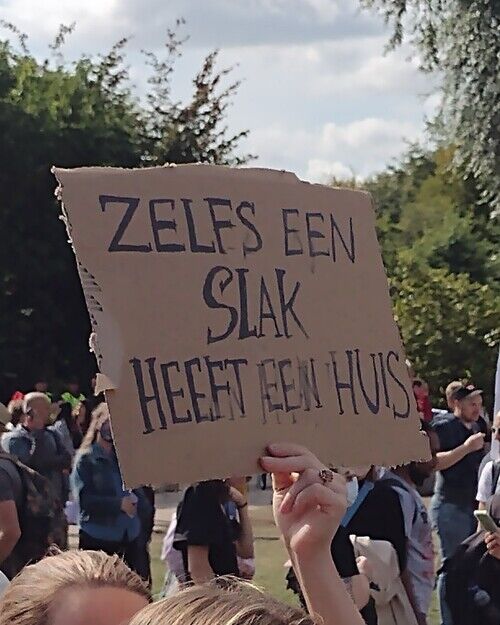 ZELFS EEN
SLAK
HEEFT EEN HUIS